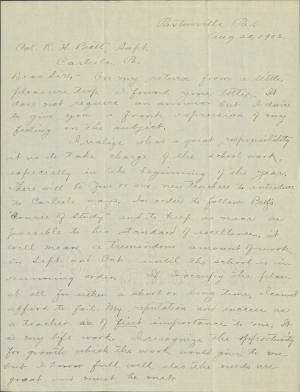 Aug 20, 1902
Col. R. H. Pratt, Supt.
Carlisle Pa.
Dear Sir; - On my return from a little
pleasure trip I found your letter. It
does not require an answer but I desire
to give you a frank expression of my
feeling on the subject.
I realize what a great responsibility
it is to take charge of the school work,
especially in the beginning of the year.
There will be five or six new teachers to introduce
to Carlisle ways. In order to follow
"Course of Study" and to keep as near as
possible to his standard of excellence, it
will mean a tremendous amount of work
in Sept. and Oct. until the school is in
running order. If I occupy the place
at all for either a short or long time, I cannot
afford to fail. My reputation and success as
a teacher is of first importance to me. It
is my life work. I recognize the opportunity
for growth which the work would give to me
but I know full well also the needs are
great and must be met.